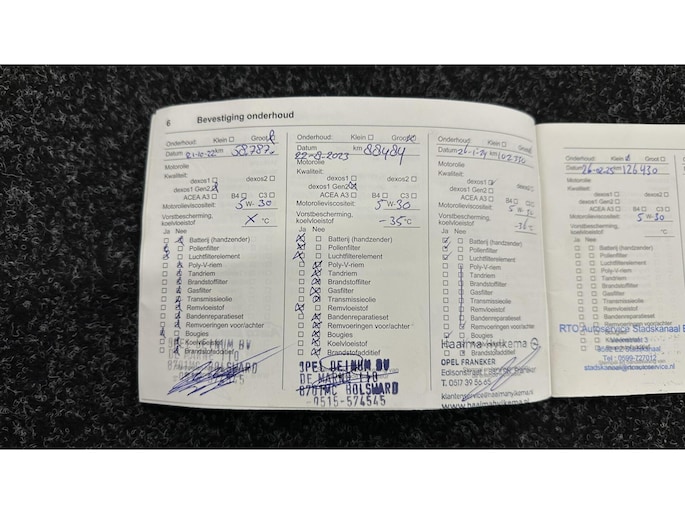 6 Bevestiging onderhoud
Onderhoud: Klein Groot
Datum 21-10-22 km 58.787
Motorolie
Kwaliteit:
dexos1 dexos2
dexos1 Gen2
ACEA A3 B4 C3
Motorolieviscositeit: 5 W- 30
Vorstbescherming,
koelvloeistof X °C
Ja Nee
Batterij (handzender)
Pollenfilter
Luchtfilterelement
Poly-V-riem
Tandriem
Brandstoffilter
Gasfilter
Transmissieolie
Remvloeistof
Bandenreparatieset
Remvoeringen voor/achter
Bougies
Koelvloeistof
Brandstofadditief
DE MARNE 110
8701MC BOLSWARD
Onderhoud: Klein Groot
Datum km
22-8-2023 88484
Motorolie
Kwaliteit:
dexos1 dexos2
dexos1 Gen2
ACEA A3 B4 C3
Motorolieviscositeit: 5 W- 30
Vorstbescherming,
koelvloeistof -35 °C
Ja Nee
Batterij (handzender)
Pollenfilter
Luchtfilterelement
Poly-V-riem
Tandriem
Brandstoffilter
Gasfilter
Transmissieolie
Remvloeistof
Bandenreparatieset
Remvoeringen voor/achter
Bougies
Koelvloeistof
Brandstofadditief
OPEL DEINUM BV
DE MARNE 110
8701MC BOLSWARD
0515-574545
Onderhoud: Klein Groot
Datum 26-1-24 km
Motorolie
Kwaliteit:
dexos1 dexos2
dexos1 Gen2
ACEA A3 B4 C3
Motorolieviscositeit: 5 W- 30
Vorstbescherming,
koelvloeistof °C
Ja Nee
Batterij (handzender)
Pollenfilter
Luchtfilterelement
Poly-V-riem
Tandriem
Brandstoffilter
Gasfilter
Transmissieolie
Remvloeistof
Bandenreparatieset
Remvoeringen voor/achter
Bougies
Brandstofadditief
Haaima Hylkema
OPEL FRANEKER
T. 0517 39 66 65
klantenservice@haaimahylkema.nl
www.haaimahylkema.nl
Onderhoud: Klein Groot
Datum km 126430
Motorolie
Kwaliteit:
dexos1 dexos2
dexos1 Gen2
ACEA A3 B4 C3
Motorolieviscositeit: 5 W- 30
Vorstbescherming,
koelvloeistof °C
Ja Nee
Batterij (handzender)
Pollenfilter
Luchtfilterelement
Poly-V-riem
Tandriem
Brandstoffilter
Gasfilter
Transmissieolie
Remvloeistof
Bandenreparatieset
Remvoeringen voor/achter
RTO Autoservice Stadskanaal
Tel: 0599-727013
stadskanaal@rtoautoservice.nl